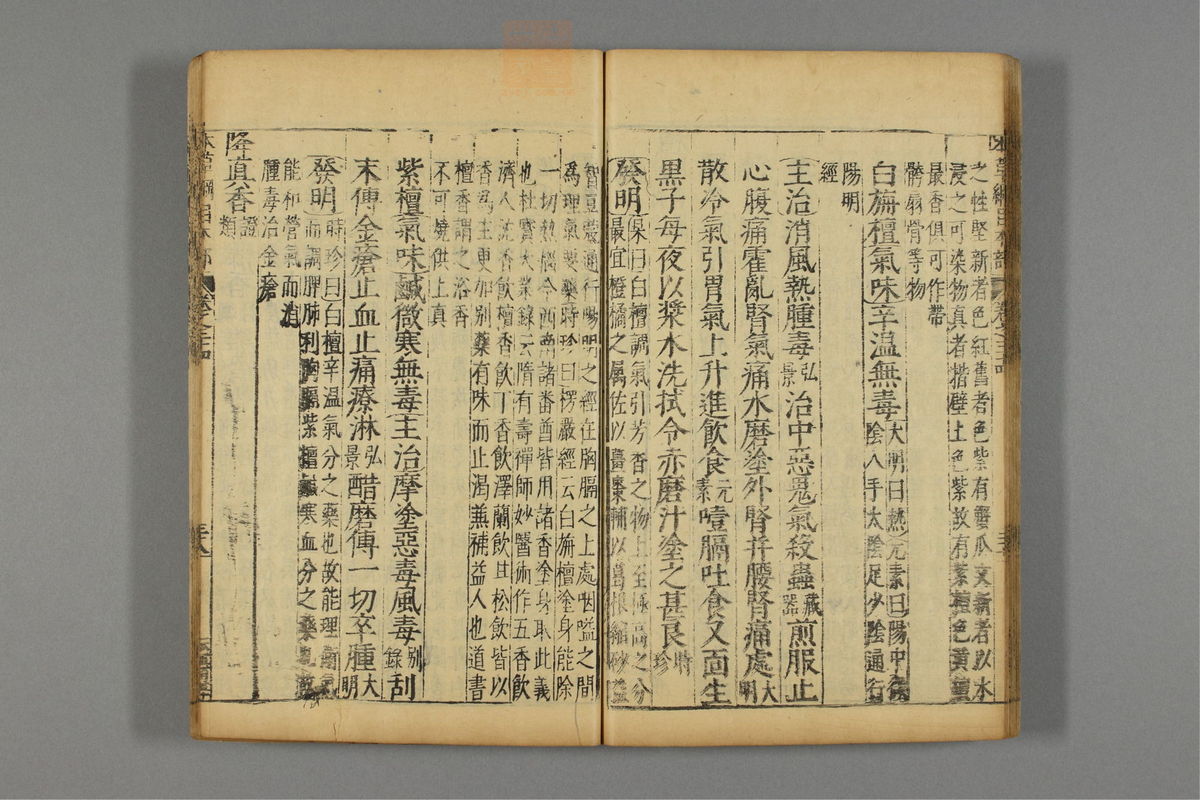 之性堅新者色紅舊者色紫有蟹爪文新者以水
浸之可染物真者揩壁上色紫故有紫檀色黃檀
最香俱可作帶
骻扇骨等物
白旃檀氣味辛温無毒大明曰熱元素曰陽中微
陰入手太陰足少陰通行
陽明
經
主治消風熱腫毒弘景治中惡鬼氣殺蟲藏器煎服止
心腹痛霍亂腎氣痛水磨塗外腎并腰腎痛處大明
散冷氣引胃氣上升進飲食元素噎膈吐食又面生
黑子每夜以漿水洗拭令赤磨汁塗之甚良時珍
發明杲曰白檀調氣引芳香之物上至極高之分
最宜橙橘之属佐以薑棗輔以葛根縮砂益
智豆蔻通行陽明之經在胸膈之上處咽嗌之間
為理氣要藥時珍曰楞嚴經云白旃檀塗身能除
一切熱惱今西南諸番酋皆用諸香塗身取此義
也杜寶大業錄云隋有壽禪師妙醫術作五香飲
濟人沈香飲檀香飲丁香飲澤蘭飲甘松飲皆以
香為主更加别藥有味而止渴兼補益人也道書
檀香謂之浴香
不可燒供上真
紫檀氣味鹹微寒無毒主治摩塗惡毒風毒别錄刮
末傅金瘡止血止痛療淋弘景醋磨傅一切卒腫大明
發明時珍曰白檀辛温氣分之藥也故能理衞氣
而調脾肺利胸膈紫檀鹹寒血分之藥也故
能和營氣而消
腫毒治金瘡
降真香證類